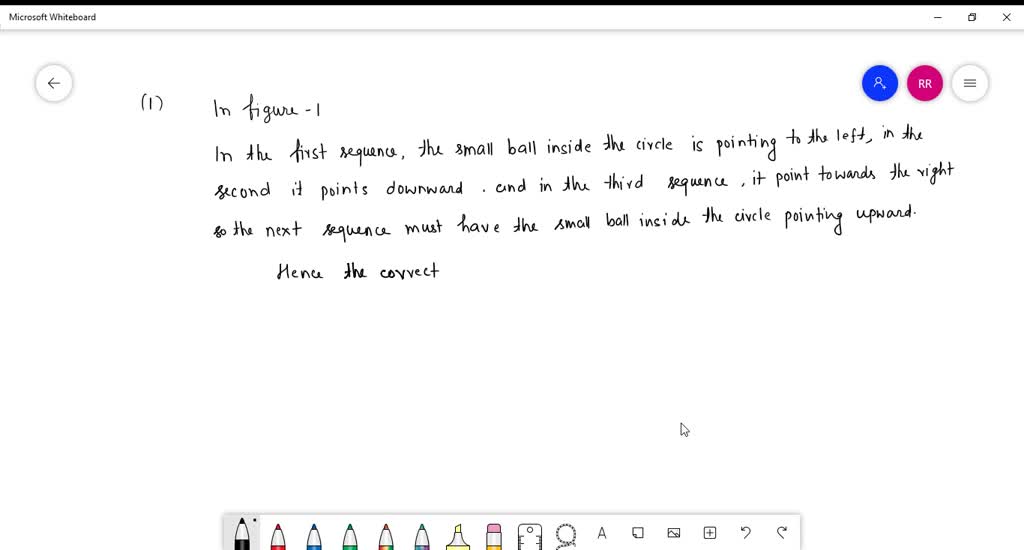 Microsoft Whiteboard
RR
(1) In figure -1
In the first sequence, the small ball inside the circle is pointing to the left, in the
second it points downward. and in the third sequence, it point towards the right
so the next sequence must have the small ball inside the circle pointing upward.
Hence the correct
A